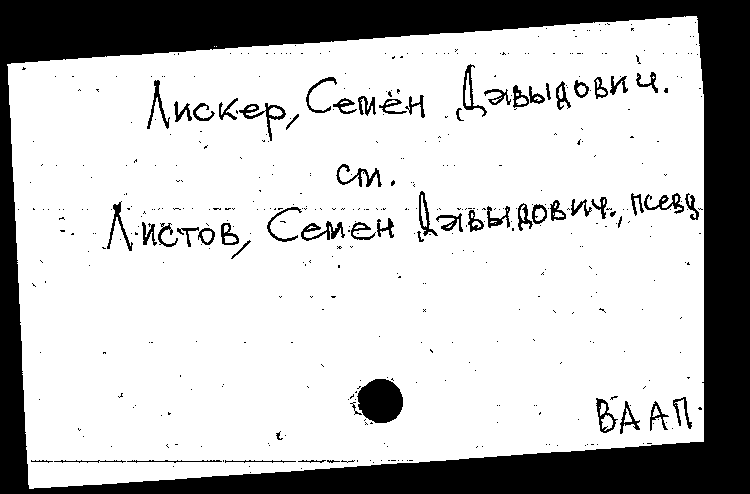 Лискер, Семён Давыдович.
см.
Листов, Семен Давыдович., псевд
ВААП.